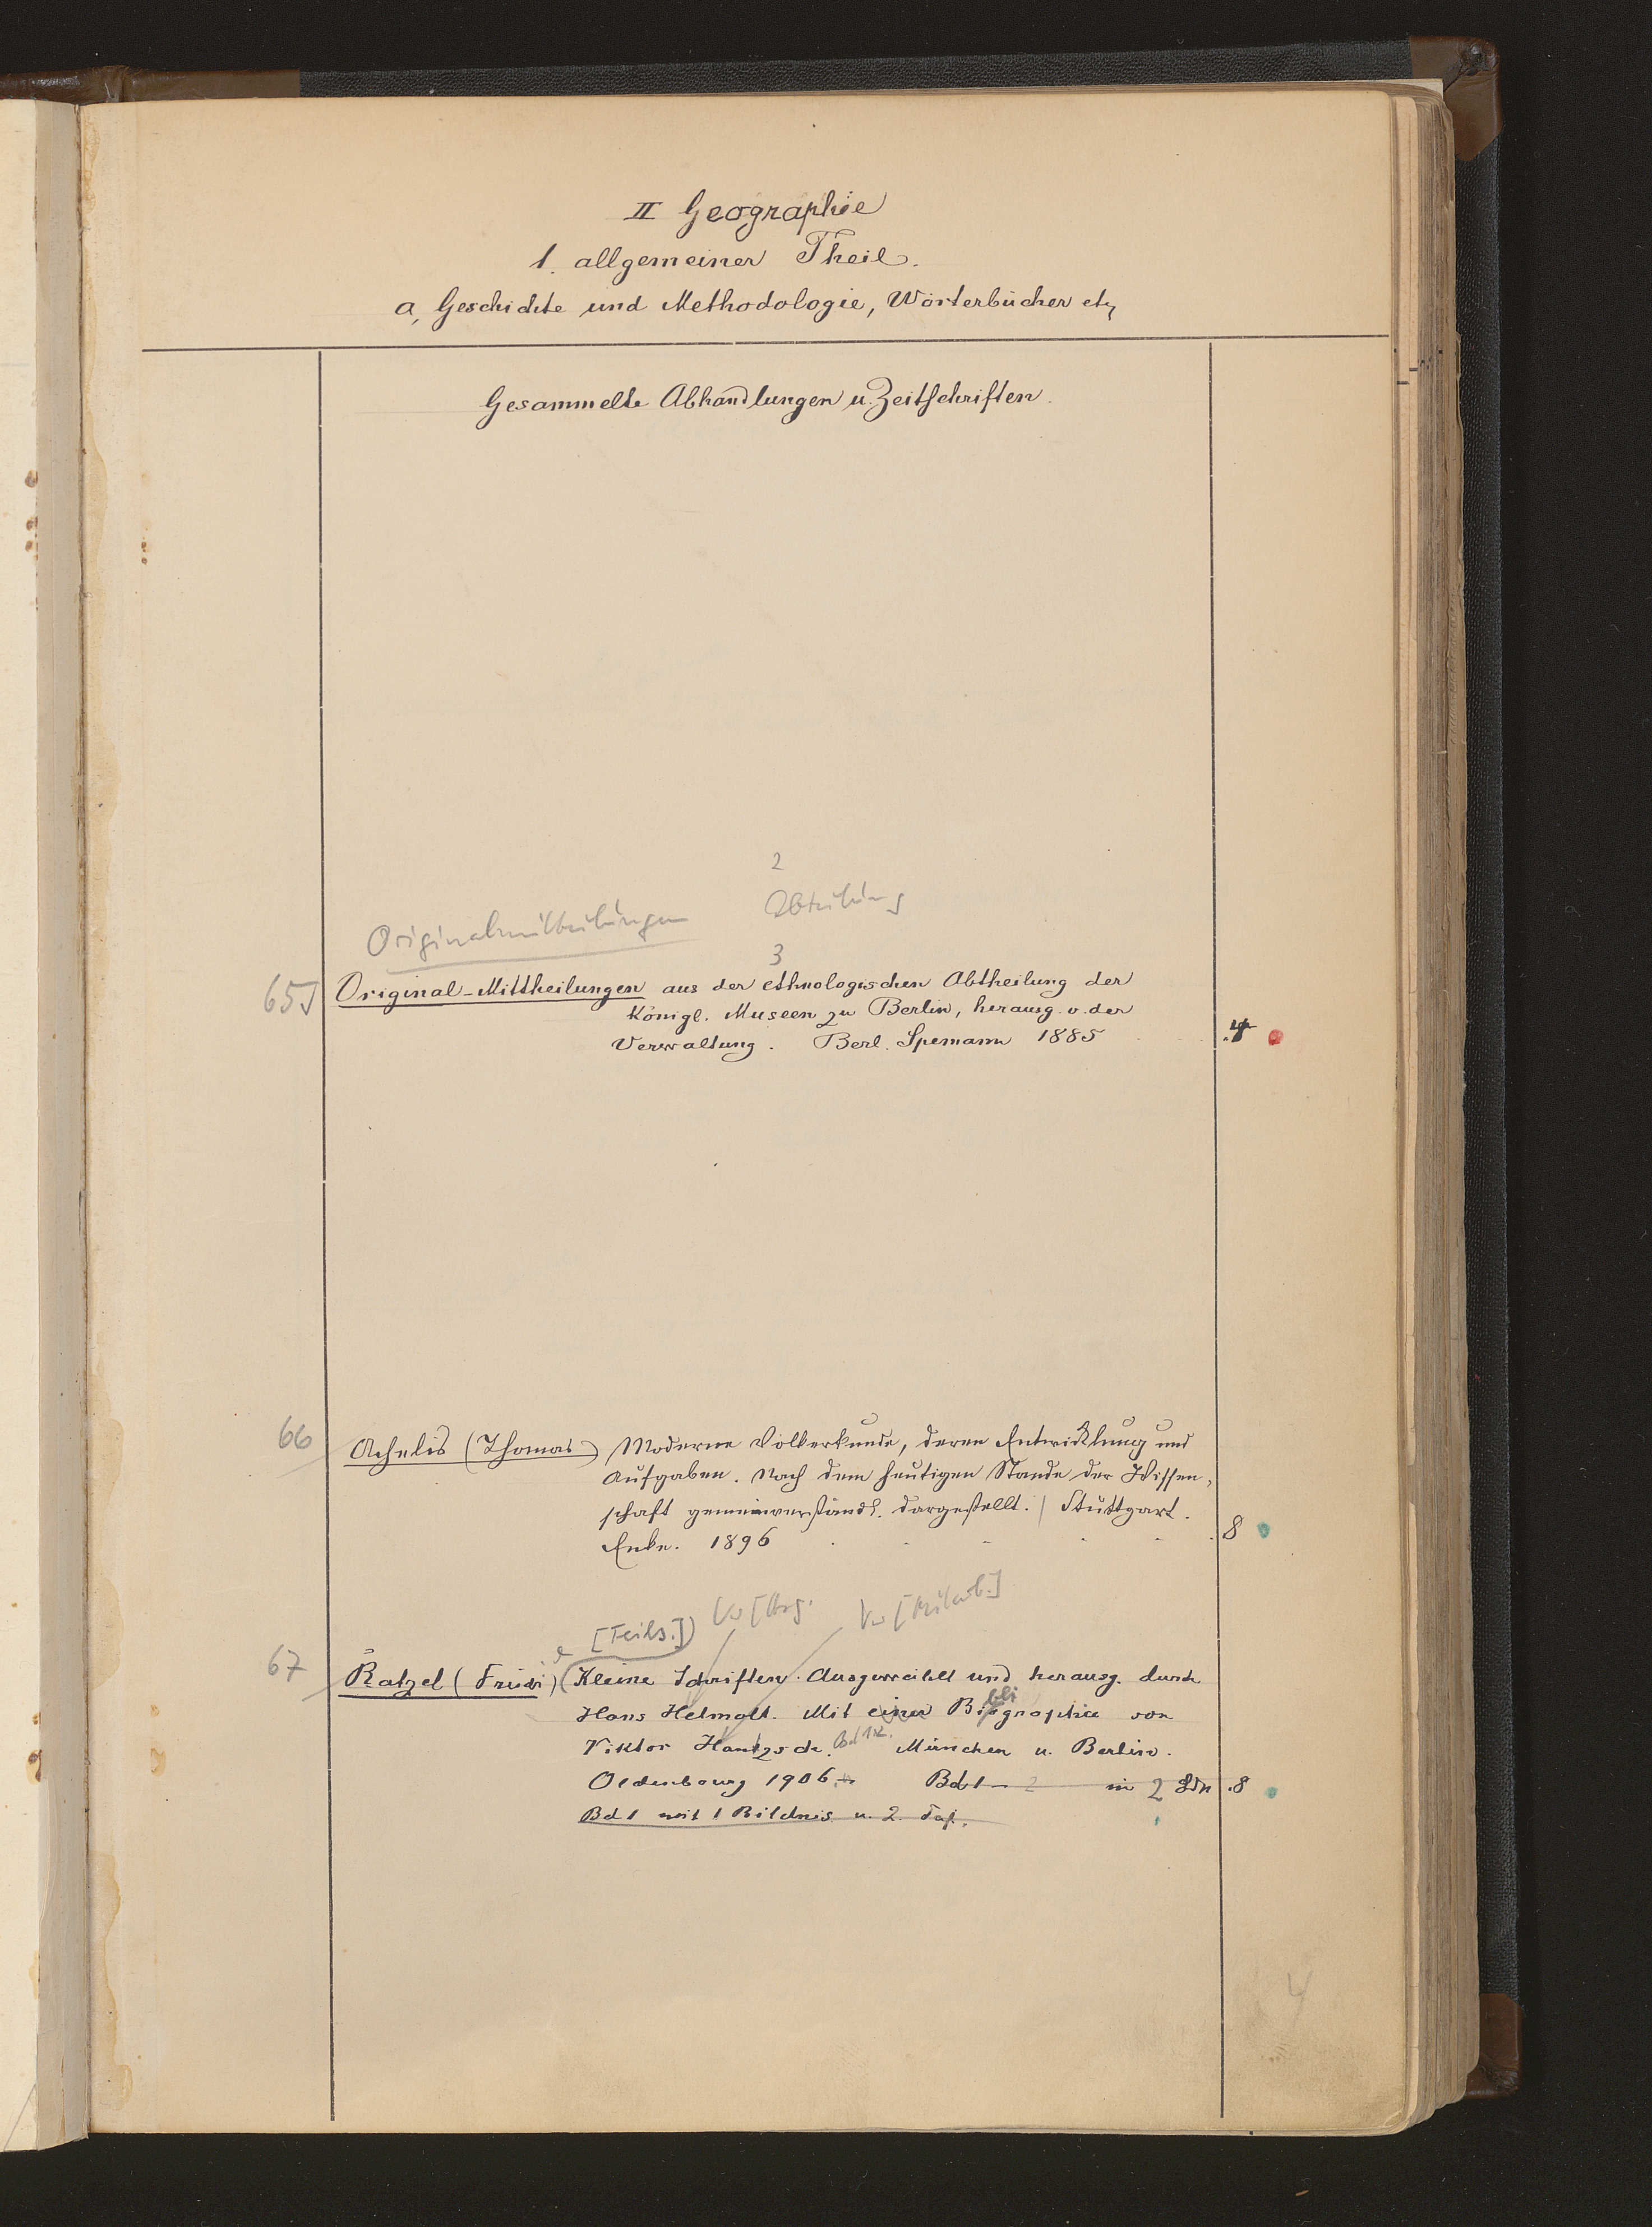 II Geographie
1. allgemeiner Theil.
a, Geschichte und Methodologie, Wörterbücher etc
Gesammelte Abhandlungen u. Zeitschriften.
2
Originalmitteilungen Abteilung
3
65 Original-Mittheilungen aus der ethnologischen Abtheilung der
Königl. Museen zu Berlin, herausg. v. der
Verwaltung. Berl. Spemann 1885 4
66 Achelis (Thomas) Moderne Völkerkunde, deren Entwicklung und
Aufgaben. Nach dem heutigen Stande der Wissen-
schaft gemeinverständl. dargestellt. / Stuttgart.
Enke. 1896 8
[Teils.]) Vw [Hrsg. Vw [Mitarb.]
67 Ratzel (Friedr) (Kleine Schriften. Ausgewählt und herausg. durch
Hans Helmolt. Mit einer Biographie von
bli
Viktor Hantzsch. Bd 1 München u. Berlin.
Oldenbourg 1906 Bd 1 - 2 in 2 Bdn 8
Bd 1 mit 1 Bildnis u. 2. Taf.
4